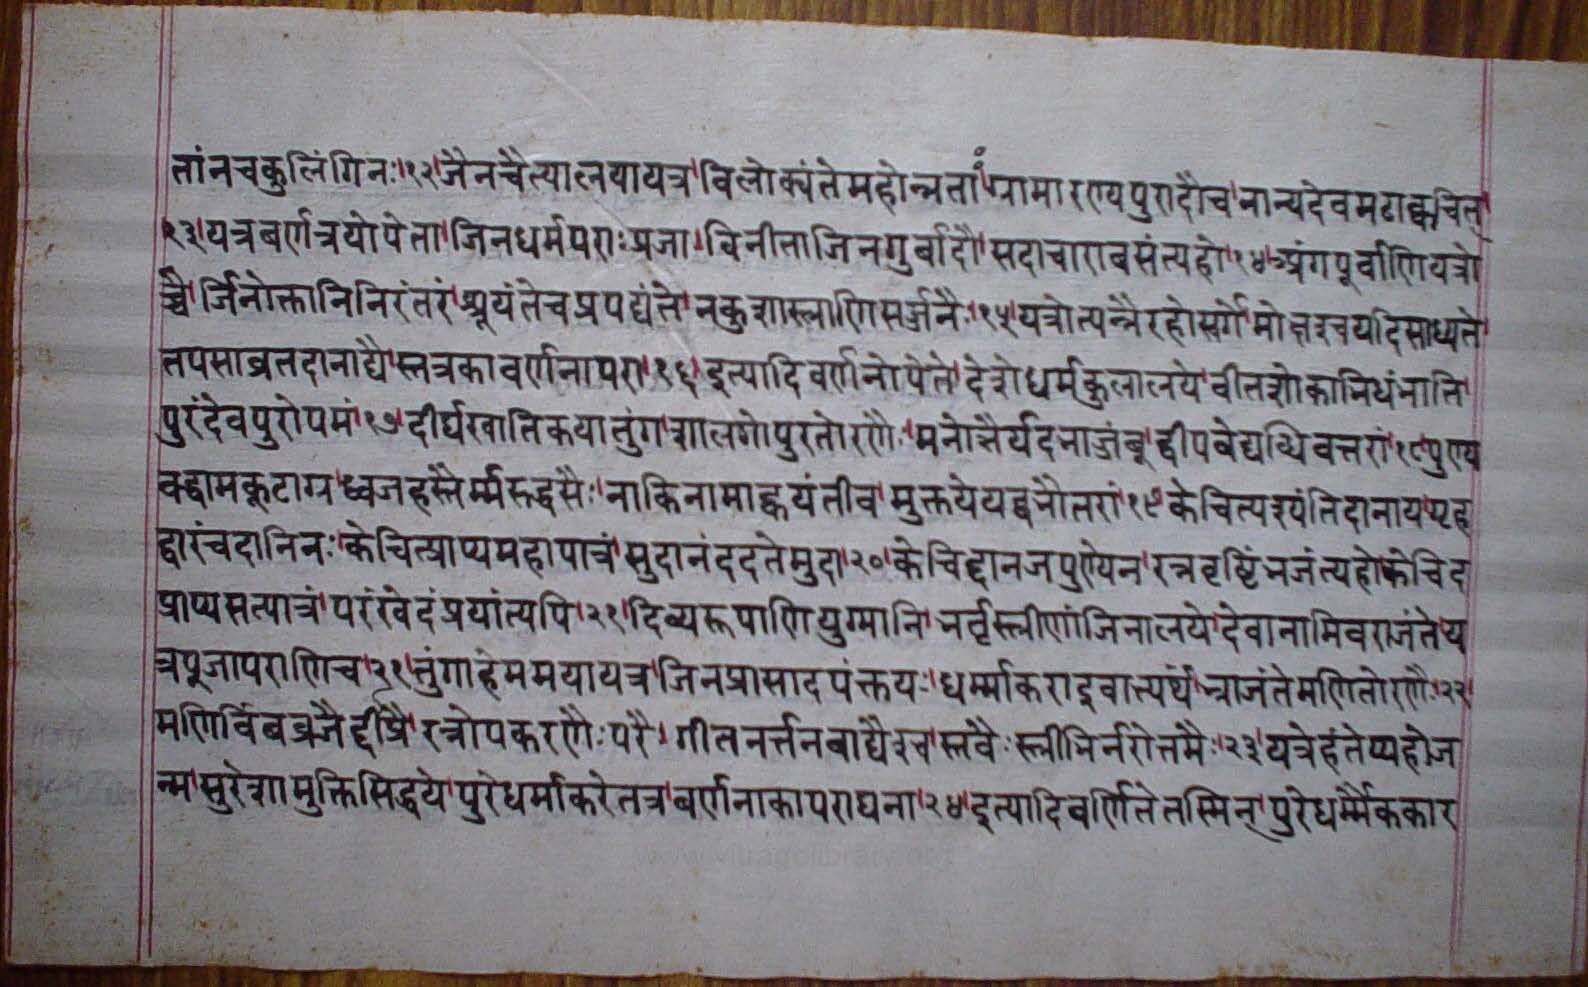 तांनचकुलिंगिनः।१२।जैनचैत्यालयायत्र।विलोक्यंतेमहोन्नतां।ग्रामारण्यपुरादौच।नान्यदेवमठाक्वचित्
१३।यत्रवर्णत्रयोपेता।जिनधर्मपराःप्रजा।विनीताजिनगुर्वादौ।सदाचारावसंत्यहो।१४।अंगपूर्वाणियत्रो
च्चै।र्जिनोक्तानिनिरंतरं।श्रूयंतेचप्रपद्यंते।नकुशास्त्राणिसर्जनैः।१५।यत्रोत्पन्नैरहोस्वर्गो।मोक्षश्चयदिसाध्यते
तपसाव्रतदानाद्यै।स्तत्रकावर्णनापरा।१६।इत्यादिवर्णनोपेते।देशेधर्मकुलालये।वीतशोकानिधंभाति
पुरंदेवपुरोपमं।१७।दीर्घखातिकयातुंग।शालगोपुरतोरणैः।मनोज्ञैर्यदभाजंबू।द्वीपवेद्यब्धिवत्तरां।१८।पुण्य
वद्धामकूटाग्र।ध्वजहस्तैर्म्मरुद्वसैः।नाकिनामाह्वयंतीव।मुक्तयेयद्वभौतरां।१९।केचित्पश्यंतिदानाय।गृह
द्वारंचदानिनः।केचित्प्राप्यमहापात्रं।सुदानंददतेमुदा।२०।केचिद्दानजपुण्येन।रत्नवृष्टिंभजंत्यहोकेचिद
प्राप्यसत्पात्रं।परंखेदंप्रयांत्यपि।२१।दिव्यरूपाणियुग्मानि।भर्तृस्त्रीणांजिनालये।देवानामिवराजंते।य
त्रपूजापराणिच।२१।तुंगाहेममयायत्र।जिनप्रासादपंक्तयः।धर्म्माकराइवात्यर्थं।भ्राजंतेमणितोरणैः।२२
मणिर्विबव्रजैर्द्दीप्रै।रत्नोपकरणैःपरै।गीतनर्त्तनवाद्यैश्च।स्तवैःस्त्रीभिर्नरोत्तमैः।२३।यत्रेहंतेप्यहोज
न्म।सुरेशामुक्तिसिद्धये।पुरेधर्माकरेतत्र।वर्णनाकापराघना।२४।इत्यादिवर्णितेतस्मिन्।पुरेधर्म्मैककार
www.vitragelibrary.net